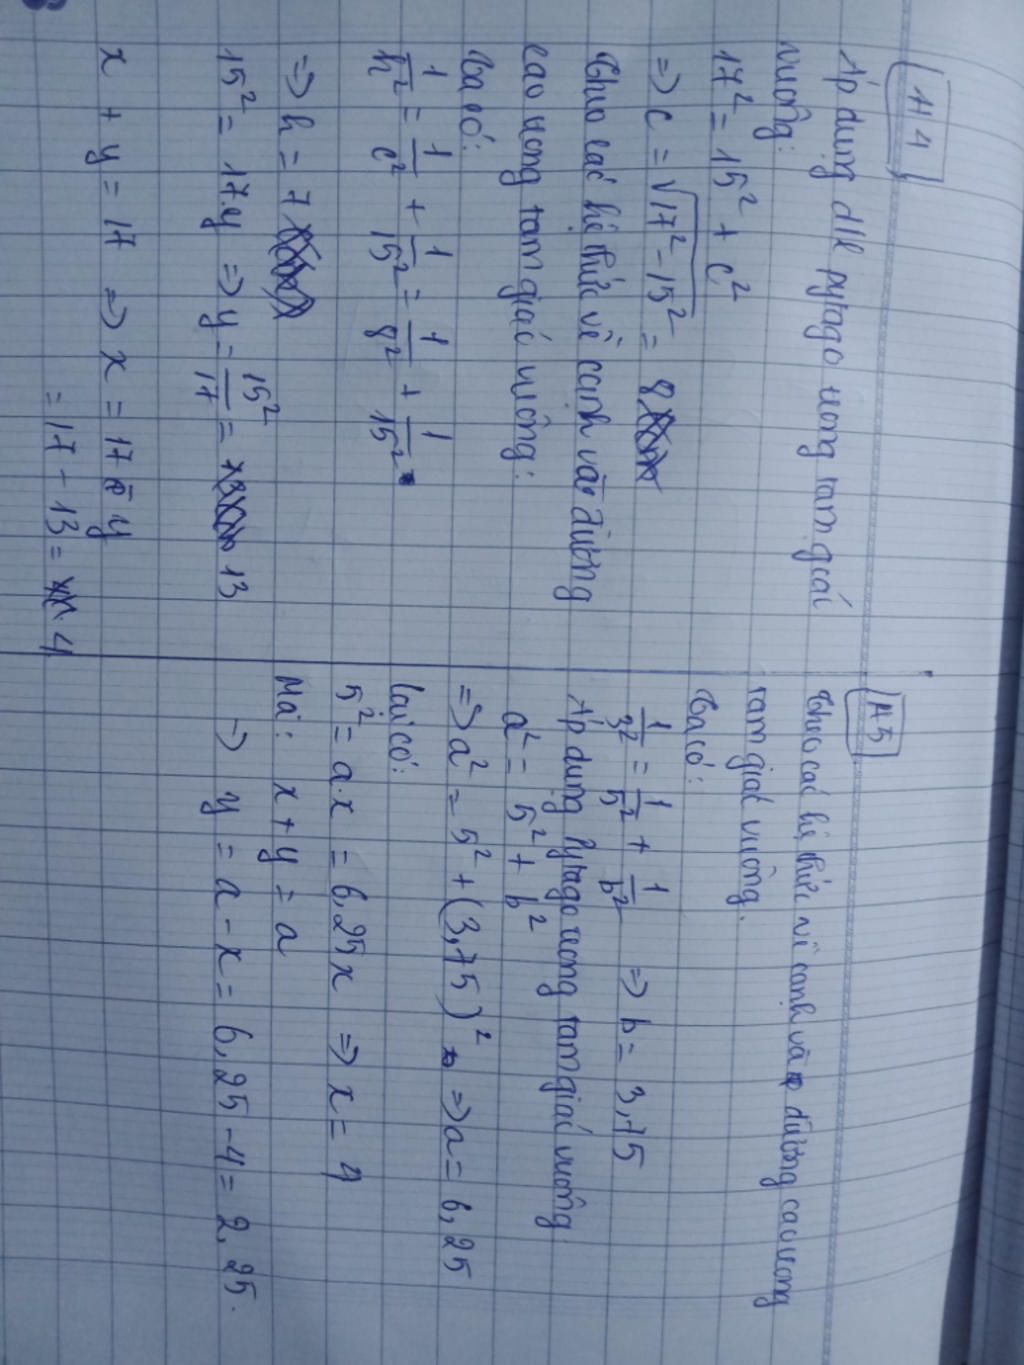 H4
Áp dụng đlí pytago trong tam giác
vuông:
17² = 15² + c²
=> c = √17² - 15² = 8
Theo các hệ thức về cạnh và đường
cao trong tam giác vuông:
Ta có:
1/h² = 1/c² + 1/15² = 1/8² + 1/15²
=> h = 7
15² = 17.y => y = 15²/17 = 13
x + y = 17 => x = 17 - y
= 17 - 13 = 4
H5
Theo các hệ thức về cạnh và đường cao trong
tam giác vuông.
Ta có:
1/3² = 1/5² + 1/b² => b = 3,75
Áp dụng Pytago trong tam giác vuông.
a² = 5² + b²
=> a² = 5² + (3,75)² => a = 6,25
lại có:
5² = a.x = 6,25x => x = 4
Mà: x + y = a
=> y = a - x = 6,25 - 4 = 2,25.